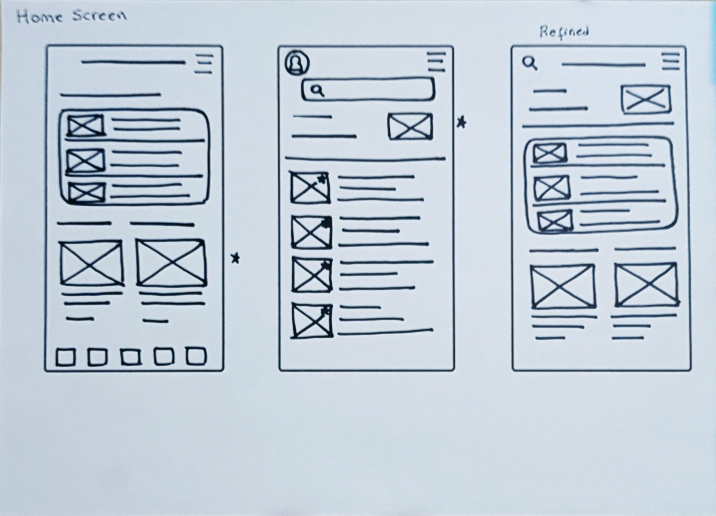 Home Screen
Refined